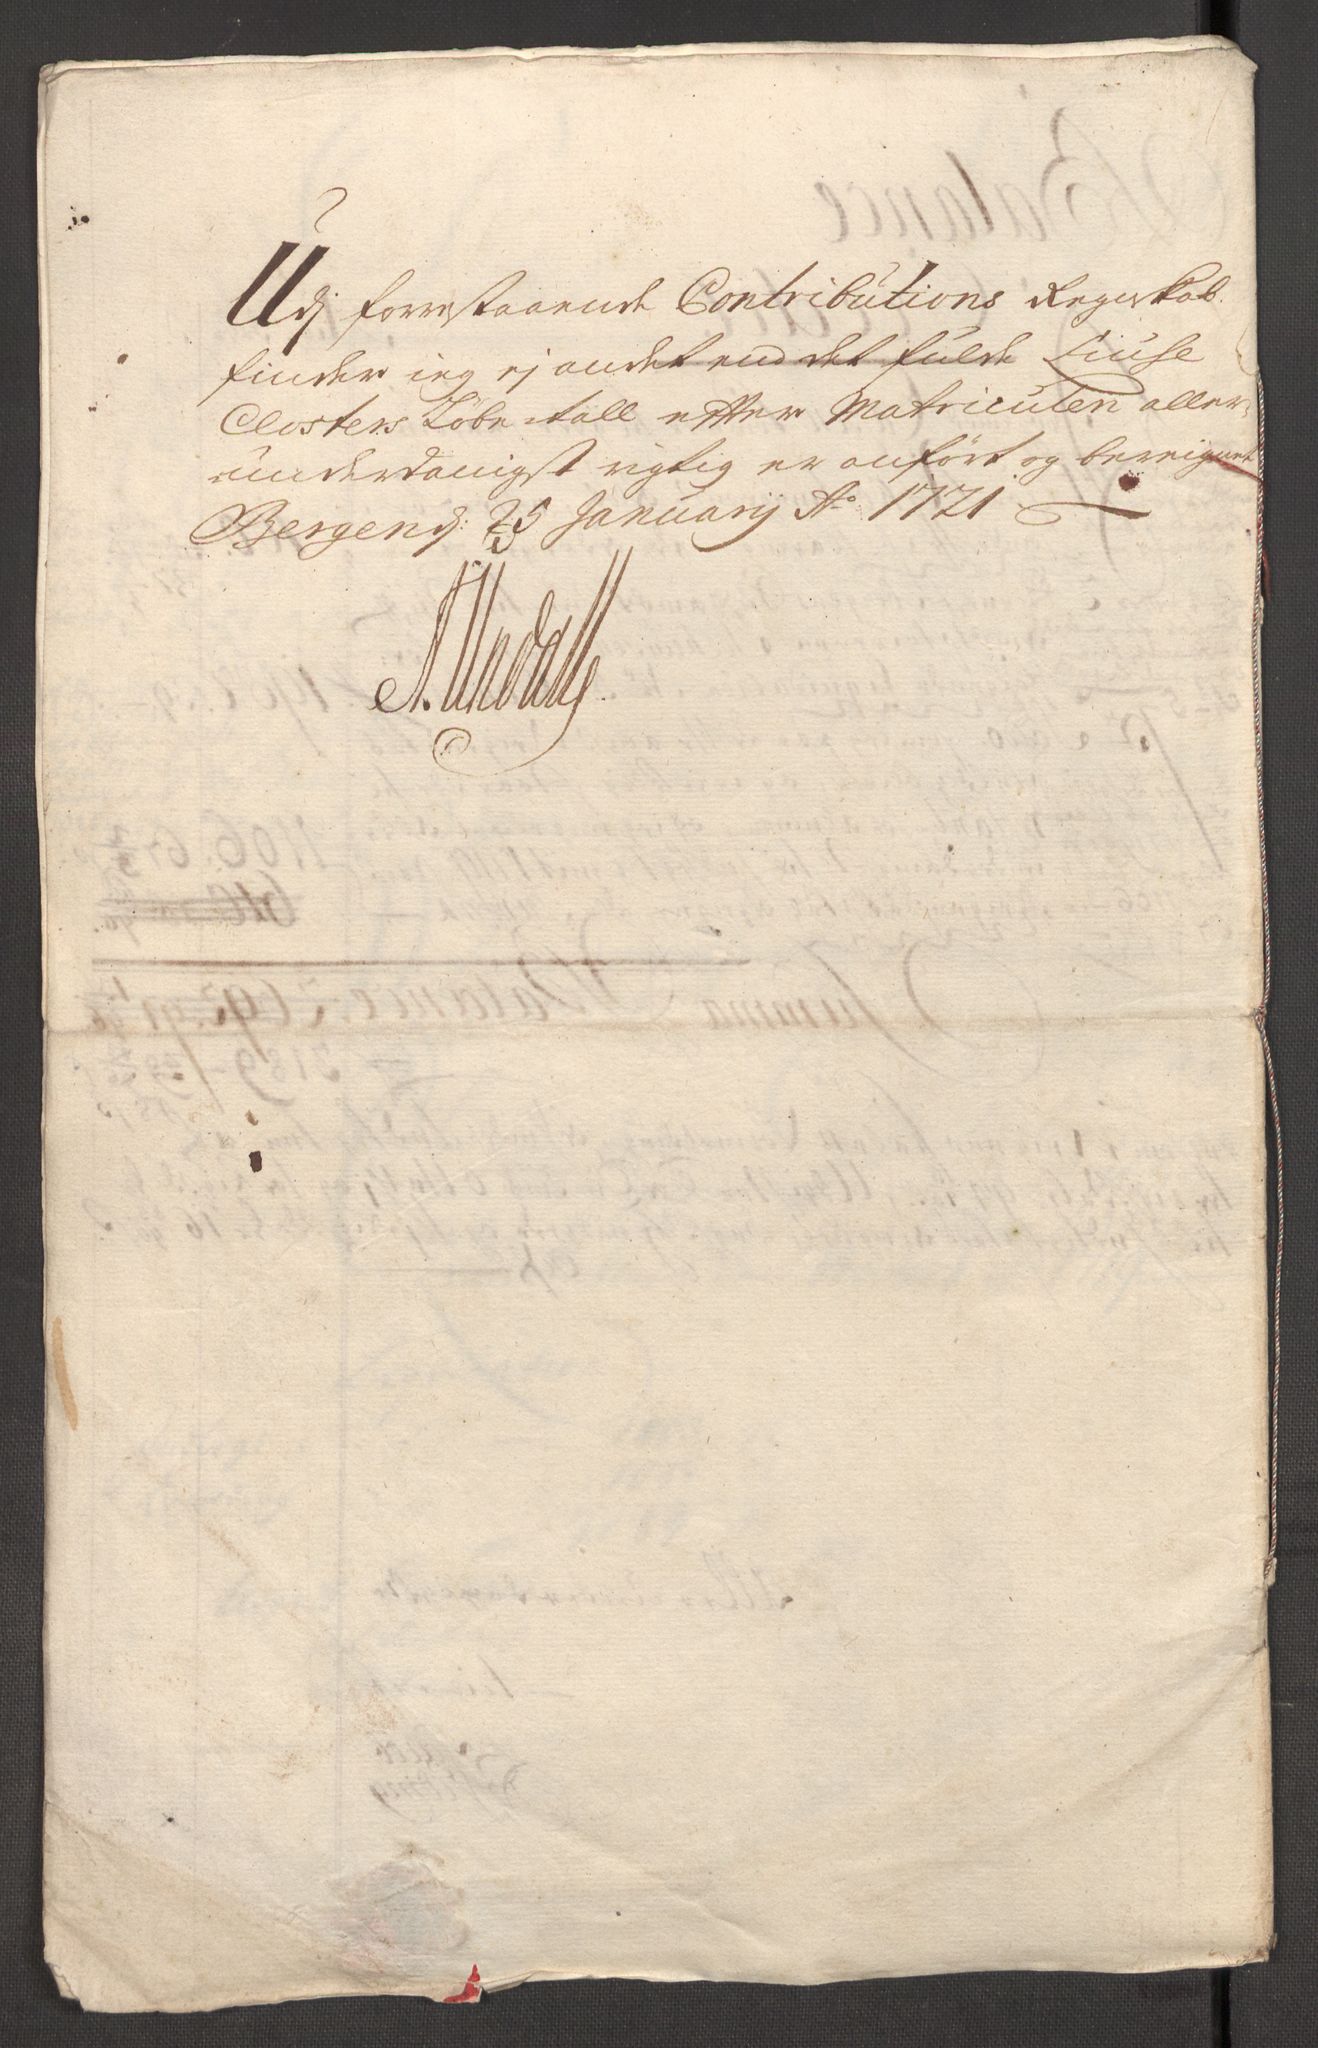 Udj forrestaaende Contributions Regnskab
finder ieg ej andet end det fulde Liuse
Closters Löbe tall effter Matriculen aller,
underdanigst rigtig er anfört og bereignet
Bergen d: 25 Januarij Ao 1721